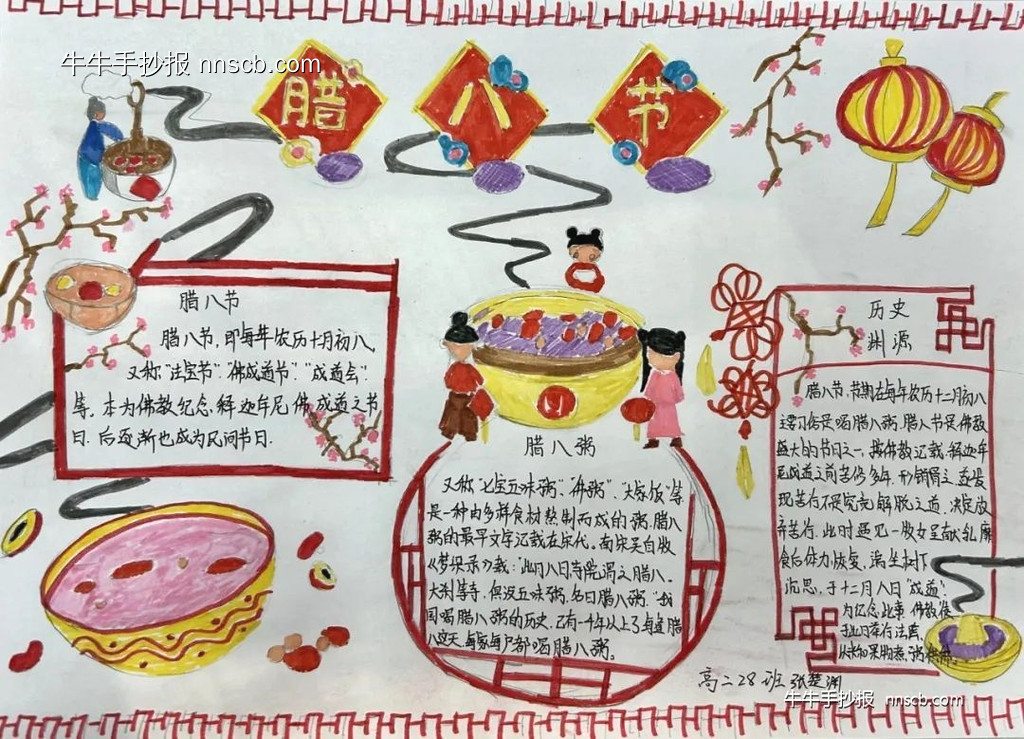 牛牛手抄报 nnscb.com
腊八节
腊八节
腊八节,即每年农历十月初八,
又称“法宝节”.“佛成道节”.“成道会”.
等。本为佛教纪念释迦牟尼佛成道之节
日.后逐渐也成为民间节日.
腊八粥
又称“七宝五味粥”.“佛粥”.“大家饭”等
是一种由多样食材熬制而成的粥.腊八
粥的最早文字记载在宋代。南宋吴自牧
《梦粱录》载:“此月八日寺院谓之腊八。
大刹等寺,俱设五味粥,名曰腊八粥.”我
国喝腊八粥的历史,已有一千年以上了每逢腊
八这天,每家每户都喝腊八粥。
历史
渊源
腊八节,节期在每年农历十二月初八
主要习俗是喝腊八粥.腊八节是佛教
盛大的节日之一.据佛教记载,释迦牟
尼成道之前苦修多年,形销骨立,
现苦行不是究竟解脱之道,决定放
弃苦行.此时遇见一牧女呈献乳糜
食后体力恢复,端坐树下
沉思,于十二月八日“成道”.
为纪念此事,佛教
于此日举行法会,
高二28班
牛牛手抄报 nnscb.com